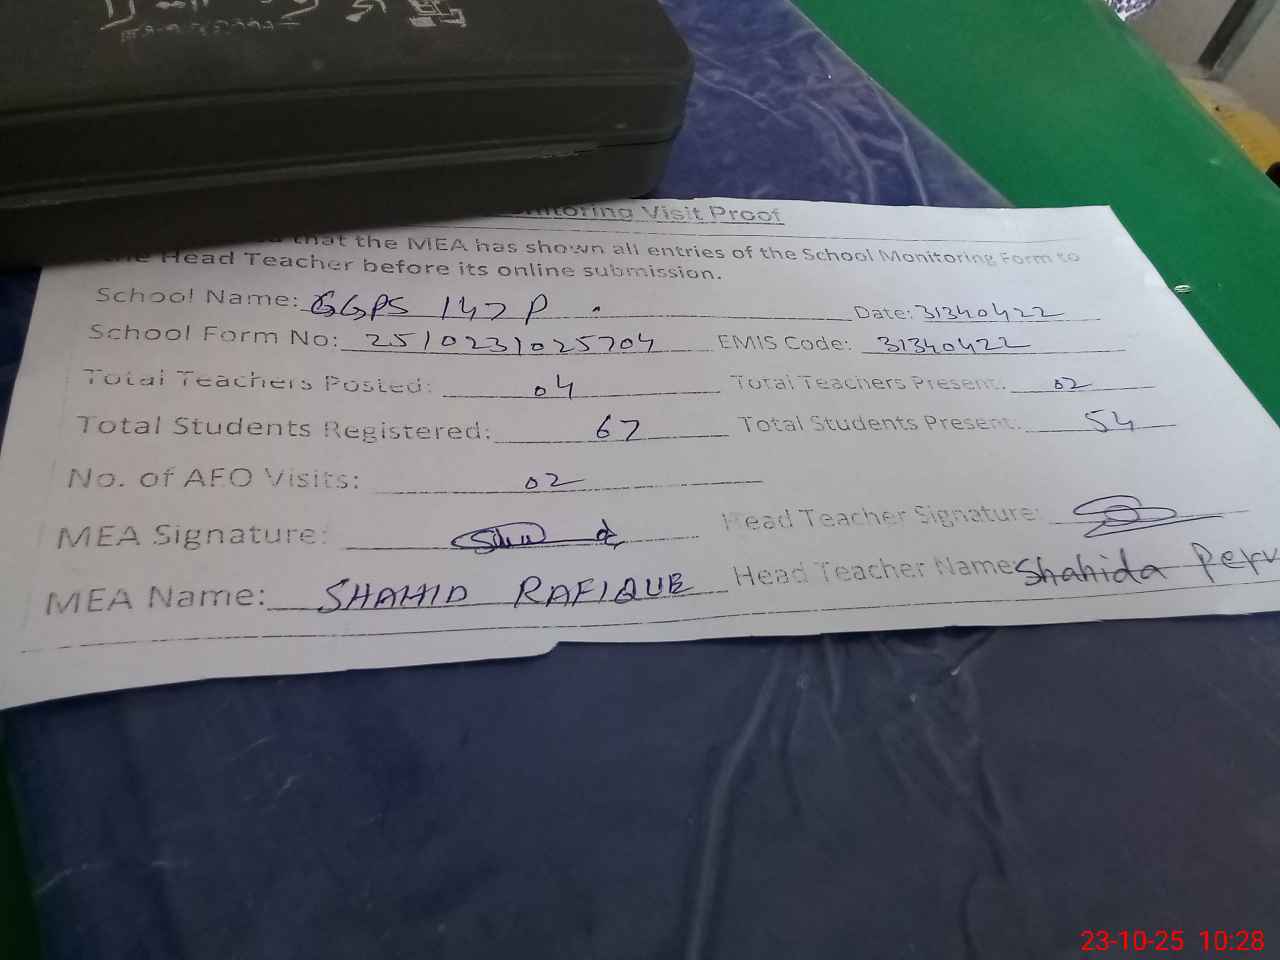 Visit Proof
that the MEA has shown all entries of the School Monitoring Form to
the Head Teacher before its online submission.
School Name: GGPS 147 P . Date: 31340422
School Form No: 2510231025704 EMIS Code: 31340422
Total Teachers Posted: 04 Total Teachers Present: 02
Total Students Registered: 67 Total Students Present: 54
No. of AFO Visits: 02
MEA Signature: Head Teacher Signature:
MEA Name: SHAHID RAFIQUE Head Teacher Name: Shahida Perv
23-10-25 10:28